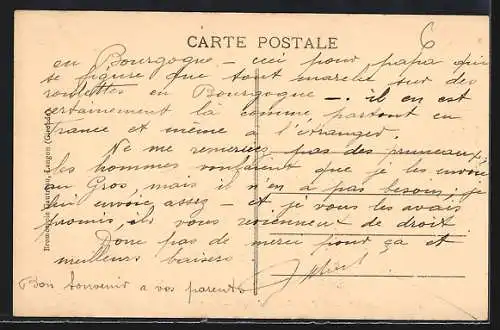 CARTE POSTALE
en Bourgogne — ceci pour papa qui
se figure que tout marche sur des
roulettes en Bourgogne —. il en est
certainement là comme partout en
France et même à l'étranger.
Ne me remerciez pas des pruneaux,
les hommes voulaient que je les envoie
au Gros, mais il n'en a pas besoin; je
lui envoie assez — et je vous les avais
promis, ils vous reviennent de droit.
Donc pas de merci pour ça et
meilleurs baisers
Bon souvenir a vos parents
Langon (Gironde)